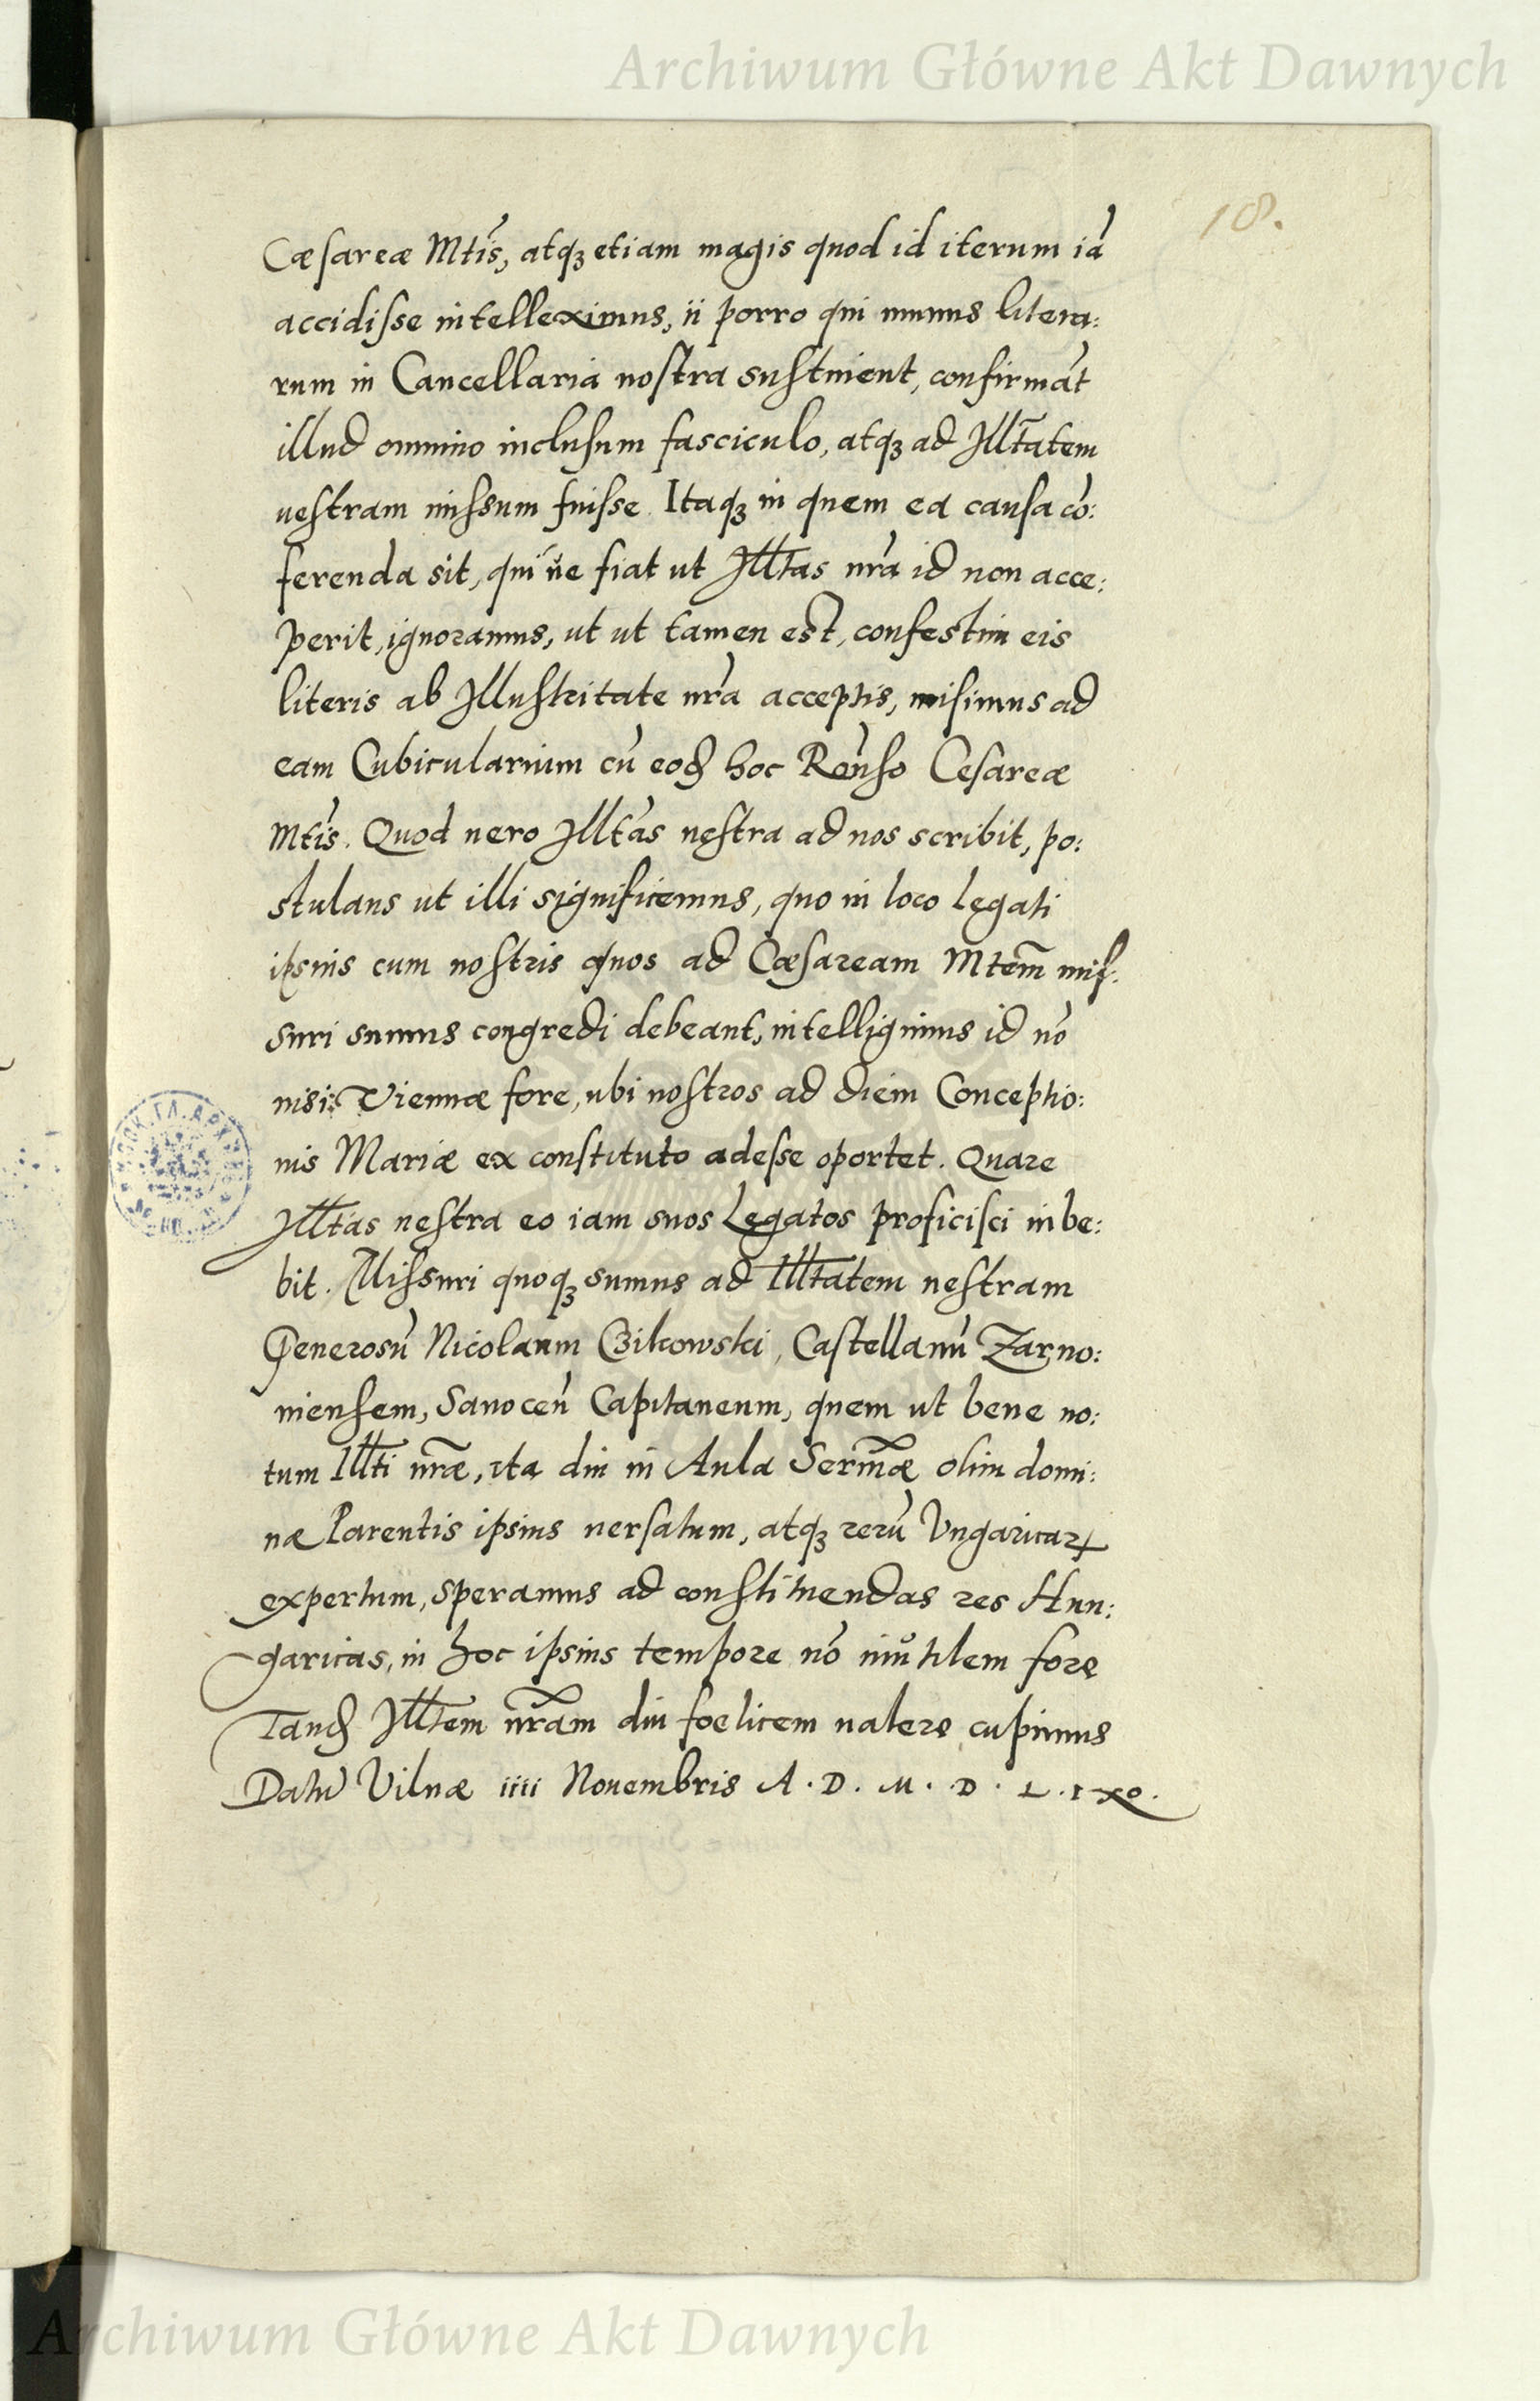 Archiwum Główne Akt Dawnych
18.
Cæsareæ Mtis, atq₃ etiam magis quod id iterum iā
accidisse intelleximus, ii porro qui munus litera:
rum in Cancellaria nostra sustinent, confirmāt
illud omnino inclusum fasciculo, atq₃ ad Illtatem
uestram missum fuisse. Itaq₃ in quem ea causa cō:
ferenda sit, qui ue fiat ut Illtas ura id non acce:
perit, ignoramus, ut ut tamen est, confestim eis
literis ab Illustritate ura acceptis, misimus ad
eam Cubicularium cū eod hoc Renso Cesareæ
Mtis. Quod uero Illtas uestra ad nos scribit, po:
stulans ut illi significemus, quo in loco Legati
ipsius cum nostris quos ad Cæsaream Mtem mis:
suri sumus congredi debeant, intelligimus id nō
nisi Viennæ fore, ubi nostros ad diem Conceptio:
nis Mariæ ex constituto adesse oportet. Quare
Illtas uestra eo iam suos Legatos proficisci iube:
bit. Missuri quoq₃ sumus ad Illtatem uestram
Generosū Nicolaum Czikowski, Castellanū Zarno:
uiensem, Sanocen Capitaneum, quem ut bene no:
tum Illti uræ, ita diu in Aula Sermæ olim domi:
næ Parentis ipsius uersatum, atq₃ rerū Vngaricarꝝ
expertum, speramus ad constituendas res Hun:
garicas, in hoc ipsius tempore nō inutilem fore
Tand Illtem uram diu foelicem ualere cupimus
Datū Vilnæ iiii Nouembris A. D. M. D. L. ixo.
Archiwum Główne Akt Dawnych